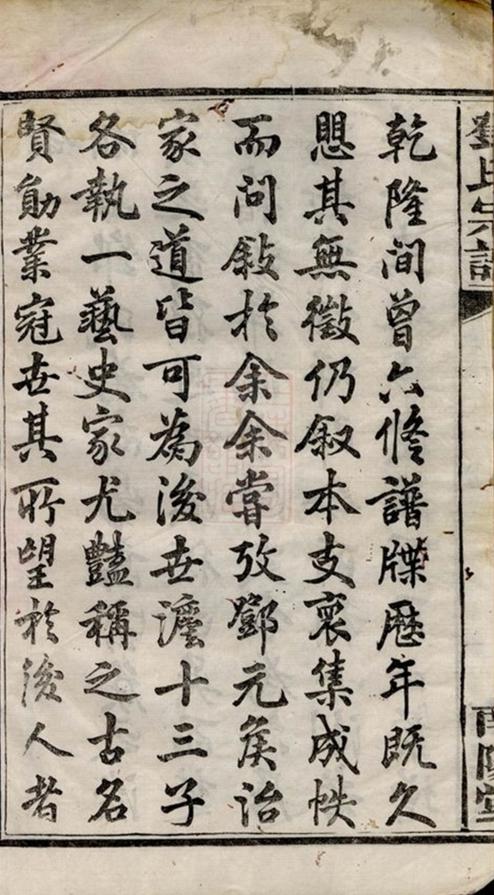 鄧氏宗譜
南陽堂
乾隆間曾六脩譜牒歷年既久
愳其無徵仍叙本支裒集成帙
而問敍於余余嘗攷鄧元侯治
家之道皆可為後世灋十三子
各執一藝史家尤豔稱之古名
賢勛業冠世其所望於後人者